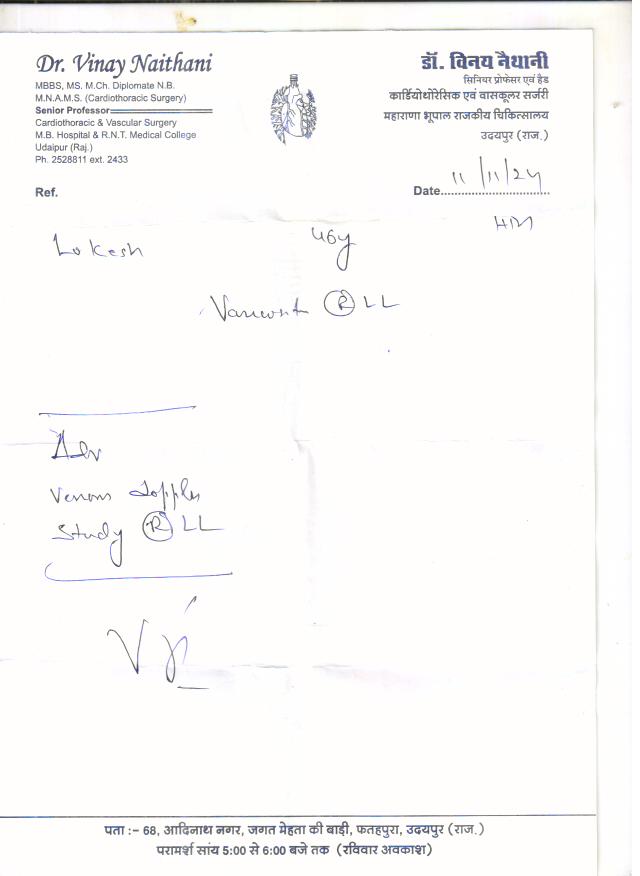 Dr. Vinay Naithani
MBBS, MS. M.Ch. Diplomate N.B.
M.N.A.M.S. (Cardiothoracic Surgery)
Senior Professor
Cardiothoracic & Vascular Surgery
M.B. Hospital & R.N.T. Medical College
Udaipur (Raj.)
Ph. 2528811 ext. 2433
डॉ. विनय नैथानी
सिनियर प्रोफेसर एवं हैड
कार्डियोथोरेसिक एवं वासकूलर सर्जरी
महाराणा भूपाल राजकीय चिकित्सालय
उदयपुर (राज.)
Ref.
Date 11/11/24
Lokesh 46y
R LL
Adv
Venous Doppler
Study R LL
पता :- 68, आदिनाथ नगर, जगत मेहता की बाड़ी, फतहपुरा, उदयपुर (राज.)
परामर्श सांय 5:00 से 6:00 बजे तक (रविवार अवकाश)